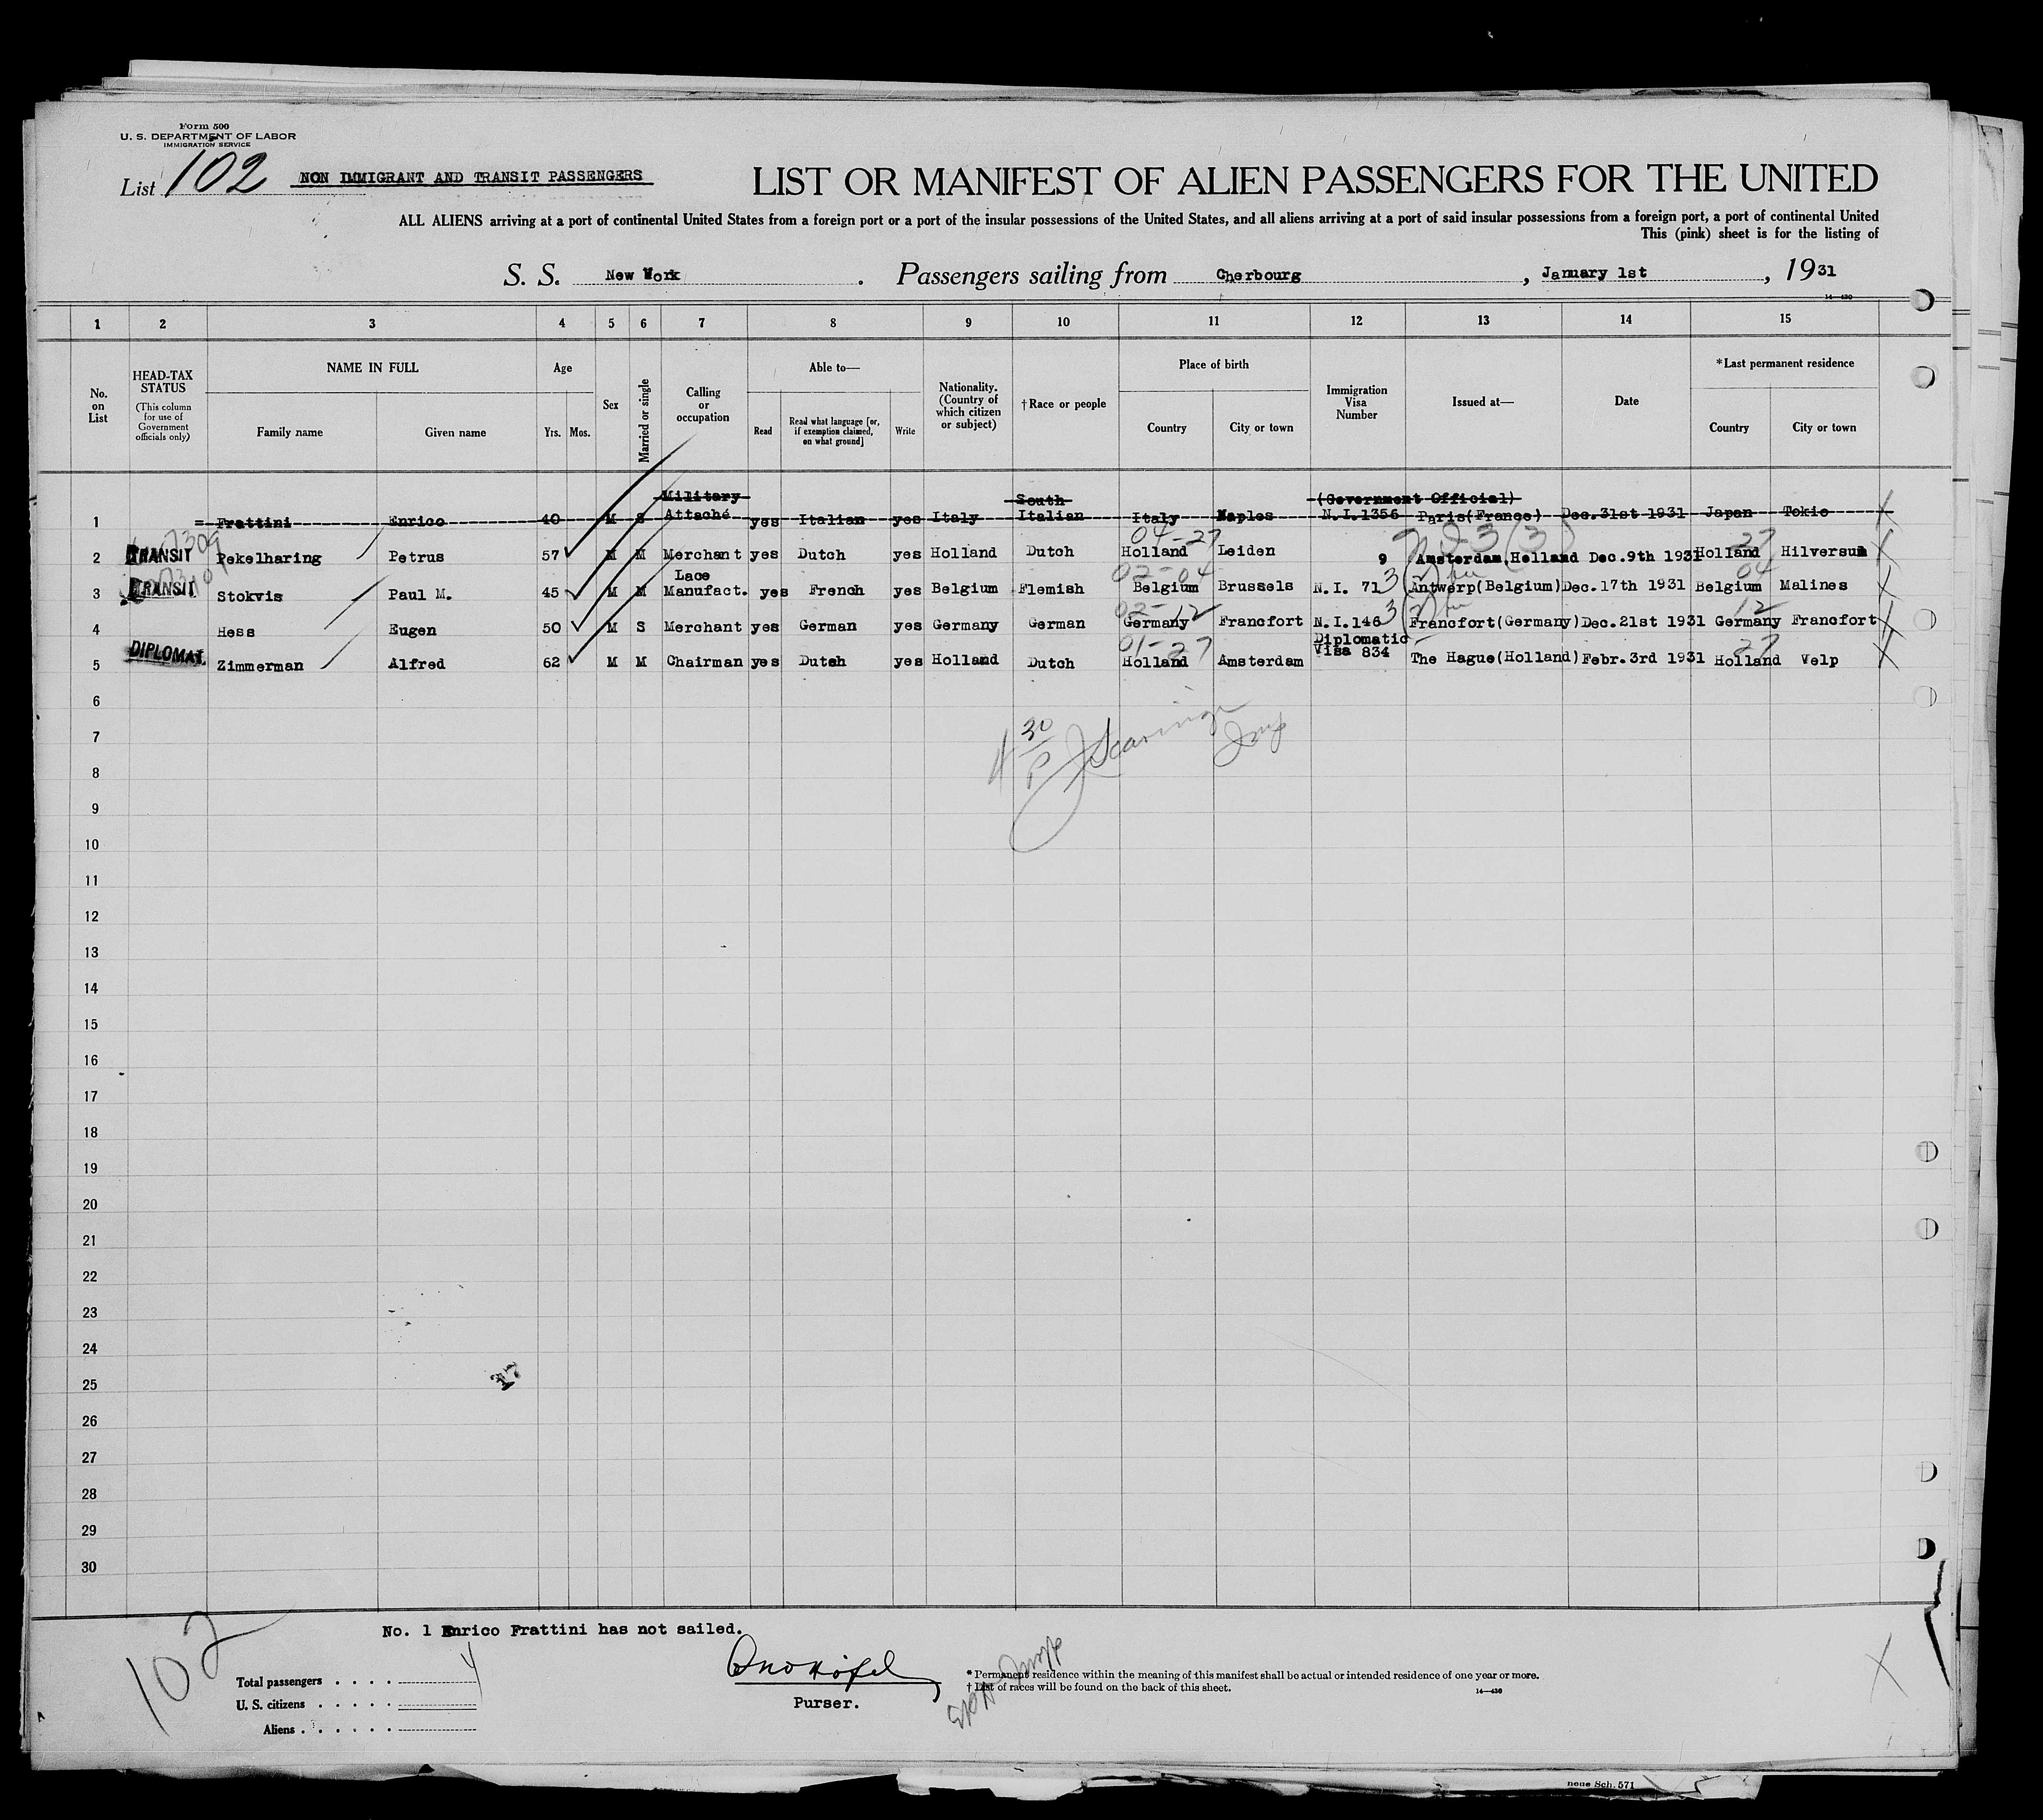 Form 500
U. S. DEPARTMENT OF LABOR
IMMIGRATION SERVICE
List 102 NON IMMIGRANT AND TRANSIT PASSENGERS LIST OR MANIFEST OF ALIEN PASSENGERS FOR THE UNITED
ALL ALIENS arriving at a port of continental United States from a foreign port or a port of the insular possessions of the United States, and all aliens arriving at a port of said insular possessions from a foreign port, a port of continental United
This (pink) sheet is for the listing of
S. S. New York . Passengers sailing from Cherbourg , January 1st , 1931
14—430
1 2 3 4 5 6 7 8 9 10 11 12 13 14 15
No. on List HEAD-TAX STATUS (This column for use of Government officials only) NAME IN FULL Family name Given name Age Yrs. Mos. Sex Married or single Calling or occupation Able to— Read Read what language [or, if exemption claimed, on what ground] Write Nationality. (Country of which citizen or subject) †Race or people Place of birth Country City or town Immigration Visa Number Issued at— Date *Last permanent residence Country City or town
Military South (Government Official)
1 Frattini Enrico 40 M S Attaché yes Italian yes Italy Italian Italy Naples N.I.1356 Paris(France) Dec.31st 1931 Japan Tokio
04-27 27
2 TRANSIT Pekelharing Petrus 57 M M Merchant yes Dutch yes Holland Dutch Holland Leiden 9 Amsterdam,Holland Dec.9th 1931 Holland Hilversum
Lace 02-04 04
3 TRANSIT Stokvis Paul M. 45 M M Manufact. yes French yes Belgium Flemish Belgium Brussels N.I. 71 3 Antwerp(Belgium) Dec.17th 1931 Belgium Malines
02-12 12
4 Hess Eugen 50 M S Merchant yes German yes Germany German Germany Francfort N.I.146 3 Francfort(Germany) Dec.21st 1931 Germany Francfort
01-27 Diplomatic 27
5 DIPLOMAT. Zimmerman Alfred 62 M M Chairman yes Dutch yes Holland Dutch Holland Amsterdam Visa 834 The Hague(Holland) Febr.3rd 1931 Holland Velp
6
7
8
9
10
11
12
13
14
15
16
17
18
19
20
21
22
23
24
25
26
27
28
29
30
No. 1 Enrico Frattini has not sailed.
102
Total passengers . . . . 4
U. S. citizens . . . . .
Aliens . . . . . .
Purser.
* Permanent residence within the meaning of this manifest shall be actual or intended residence of one year or more.
† List of races will be found on the back of this sheet.
14—430
neue Sch. 571